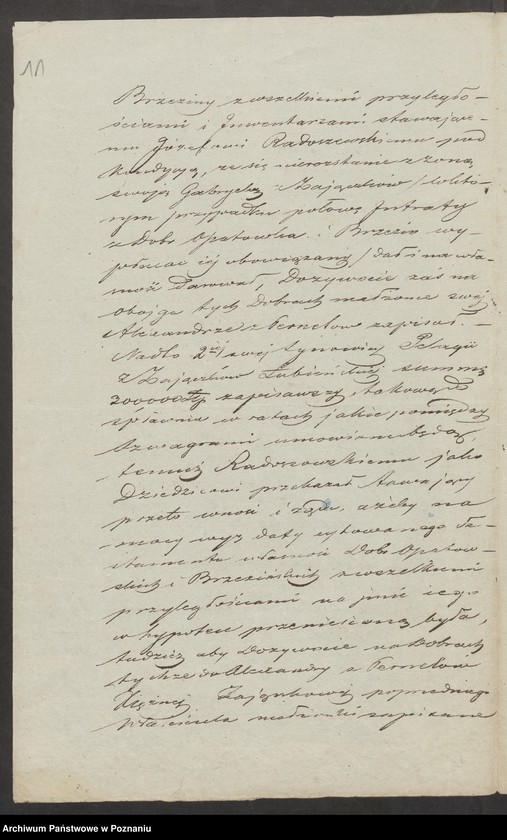 11
Brzeziny z wszelkiemi przyległo-
ściami i Inwentarzami stawające-
mu Józefowi Radoszewskiemu pod
kondycyą, że się nierozstanie z żoną
swoją Gabryelą z Zajączków /: w któ-
rym przypadku połowę Intraty
z Dobr Opatowka i Brzezin wy-
płacać jéj obowiązany / dał i na wła-
sność darował, Dożywocie zaś na
oboyga tych Dobrach małżonce swéj
Alexandrze z Pernetów zapisał. –
Nadto 2giéj swéj synowicy Pelagii
z Zajączków Łubieńskiéj summę
300000 zapisawszy, takową
w ratach jakie pomiędzy
szwagrami umówione będą,
temuż Radoszewskiemu jako
Dziedzicowi przekazał stawający
przeto wnosi i żąda, ażeby na
mocy wyż daty cytowanego Te-
stamentu własność Dobr Opatow-
skich i Brzezińskich z wszelkiemi
przyległościami na imie iego
w hypotece przeniesioną była,
tudzież aby Dożywocie na Dobrach
tychże dla Alexandry z Pernetów
Xiężnéj Zajączkowéj poprzedniego
Właściciela małżonki zapisane
Archiwum Państwowe w Poznaniu